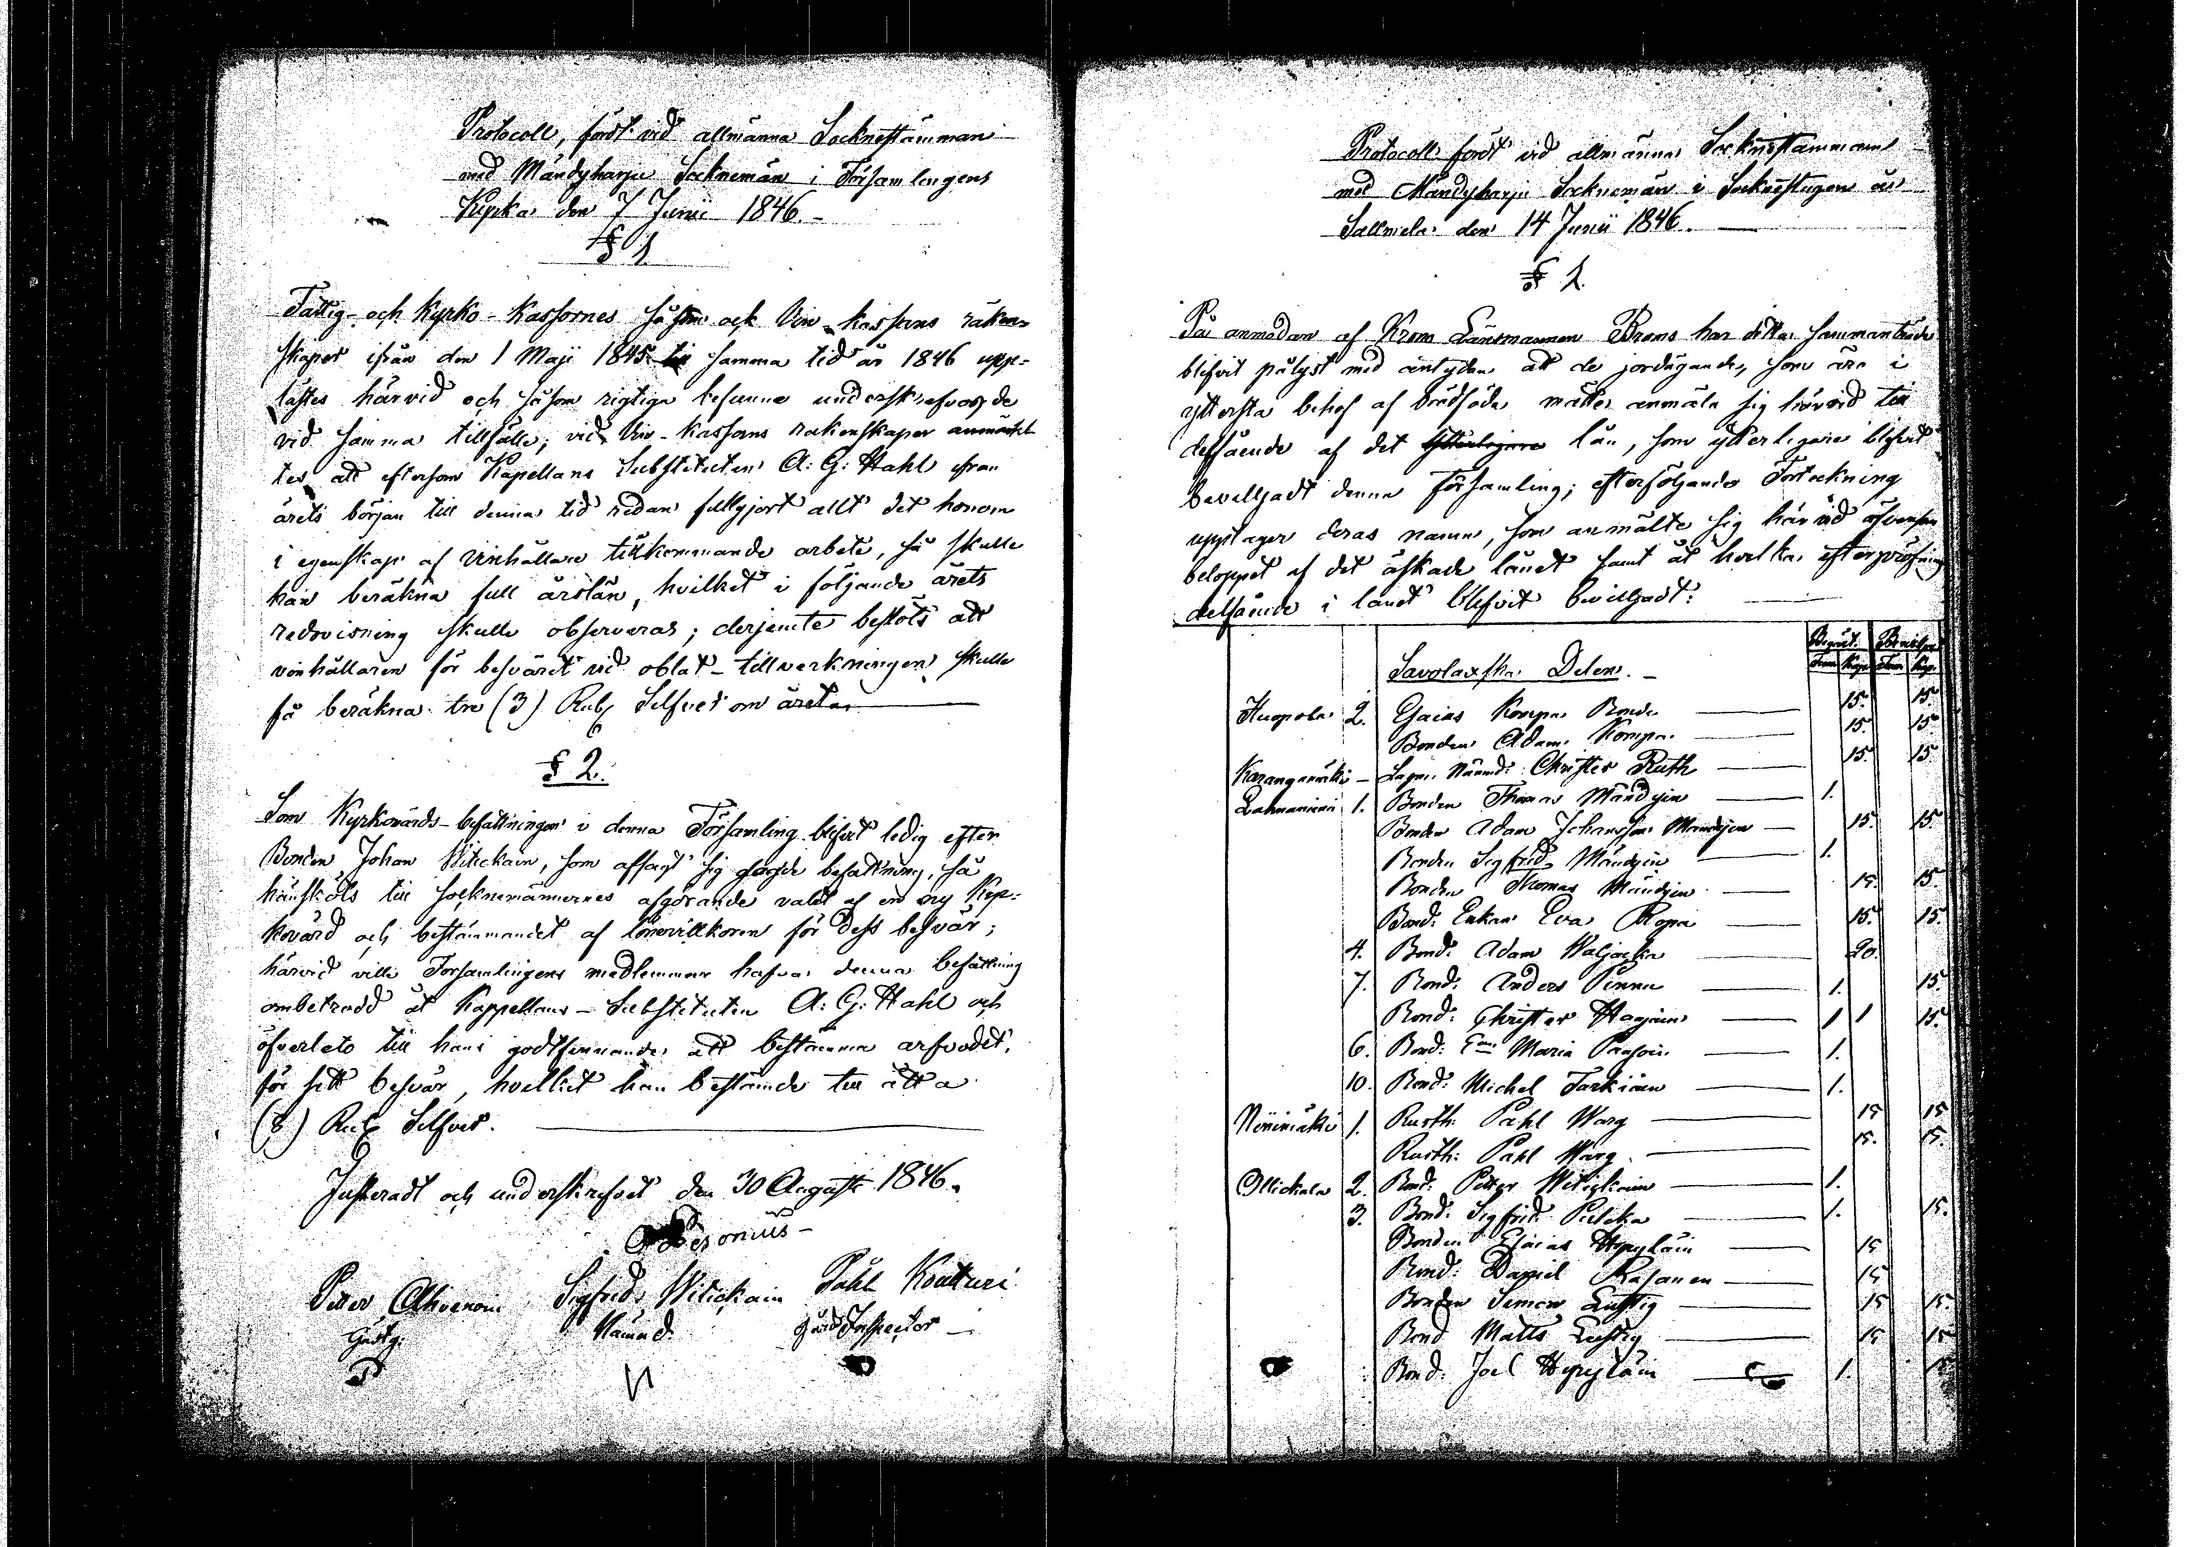 Protocoll, fördt vid allmänna Socknestämman
med Mändyharju Socknemän i Församlingens
Kyrka den 7 Junii 1846.-
§ 1.
Fattig- och Kyrko-Kassornes såsom ock Vin-kassans räken-
skaper ifrån den 1 Maji 1845 till samma tid år 1846 upp-
lästes härvid och såsom rigtiga befunna underskrefvos de
vid samma tillfälle; vid Vin-Kassans rakenskaper anmärk-
tes att eftersom Kapellans Substituten A: G: Hahl från
årets början till denna tid redan fullgjort allt det honom
i egenskap af Vinhållare tillkommande arbete, så skulle
han beräkna full årslön, hvilket i följande årets
redovisning skulle observeras; derjemte beslöts att
vinhållaren för besväret vid oblat-tillverkningen skulle
få beräkna tre (3) Rub Silfver om året.
§ 2.
Som Kyrkovärds-befattningen i denna Församling blifvit ledig efter
Bonden Johan Witickain, som afsagt sig sagde befattning, så
hänsköts till Socknemännernes afgörande valet af en ny Kyr-
kovärd och bestämmandet af lönevillkoren för dess besvär;
härvid ville Församlingens medlemmar hafva denna befattning
ombetrodd åt Kappellans-Substituten A: G: Hahl och
öfverleto till hans godtfinnande att bestämma arfvodet,
för sitt besvär, hvilket han bestämde till åtta
(8) Rub Silfver.
Justeradt och underskrifvet den 30 Augusti 1846.
Petter Ahvenain Sigfrid Witickain Påhl Koutturi
Gästg. Nämnd.
Protocoll fördt vid allmänna Socknestämman
med Mändyharju Socknemän i Sockenstugan
Salmela den 14 Junii 1846.
§ 1.
På anmodan af Krono Länsmannen Broms har detta sammanträde
blifvit pålyst med antydan att de jordägande, som äro i
yttersta behof af brödföda måtte anmäla sig härvid till
delfående af det ytterligare lån, som ytterligare blifvit
bevilljadt denna Församling; efterföljande Förteckning
upptager deras namn, som anmälte sig härvid äfvensom
beloppet af det äskade lånet samt åt hvilka efter pröfning
delfående i lånet blifvit bevilljadt:
Savolaxska Delen.- Begärt. Bevilljat
Tunn Kapp Tunn Kap.
2. Esaias Kompa Bonde 15. 15.
Bonden Adam Kompa 15. 15.
Christer Ruth 15. 15.
1. Bonden Thomas Mändyin 1.
Bonden Adam Johansson Mändyin 15. 15.
Bonden Sigfrid Mändyin 1.
Bonden Thomas Mändyin 15. 15.
Bond: Enkan Eva Ropa 15. 15.
4. Bond: Adam Waljacka 20.
7. Bond: Anders Pinna 1. 15.
Bond: Christer 1 1 15.
6. Bond: Maria 1.
10. Bond: Michel Tarkiain 1.
Niinimäki 1. Rusth: Påhl Warg 15 15
Rusth: Påhl Warg 15. 15.
Ollickala 2. Bond: Petter Witickain 1.
3. Bond: Sigfrid Pulcka 1. 15.
Bonden Esaias Hyyryläin 15
Bond: Daniel Räsanen 15
Bonden Simon Lustig 15 15.
Bond Matts Lustig 15 15
Bond: Joel Hyyryläin 1. 15